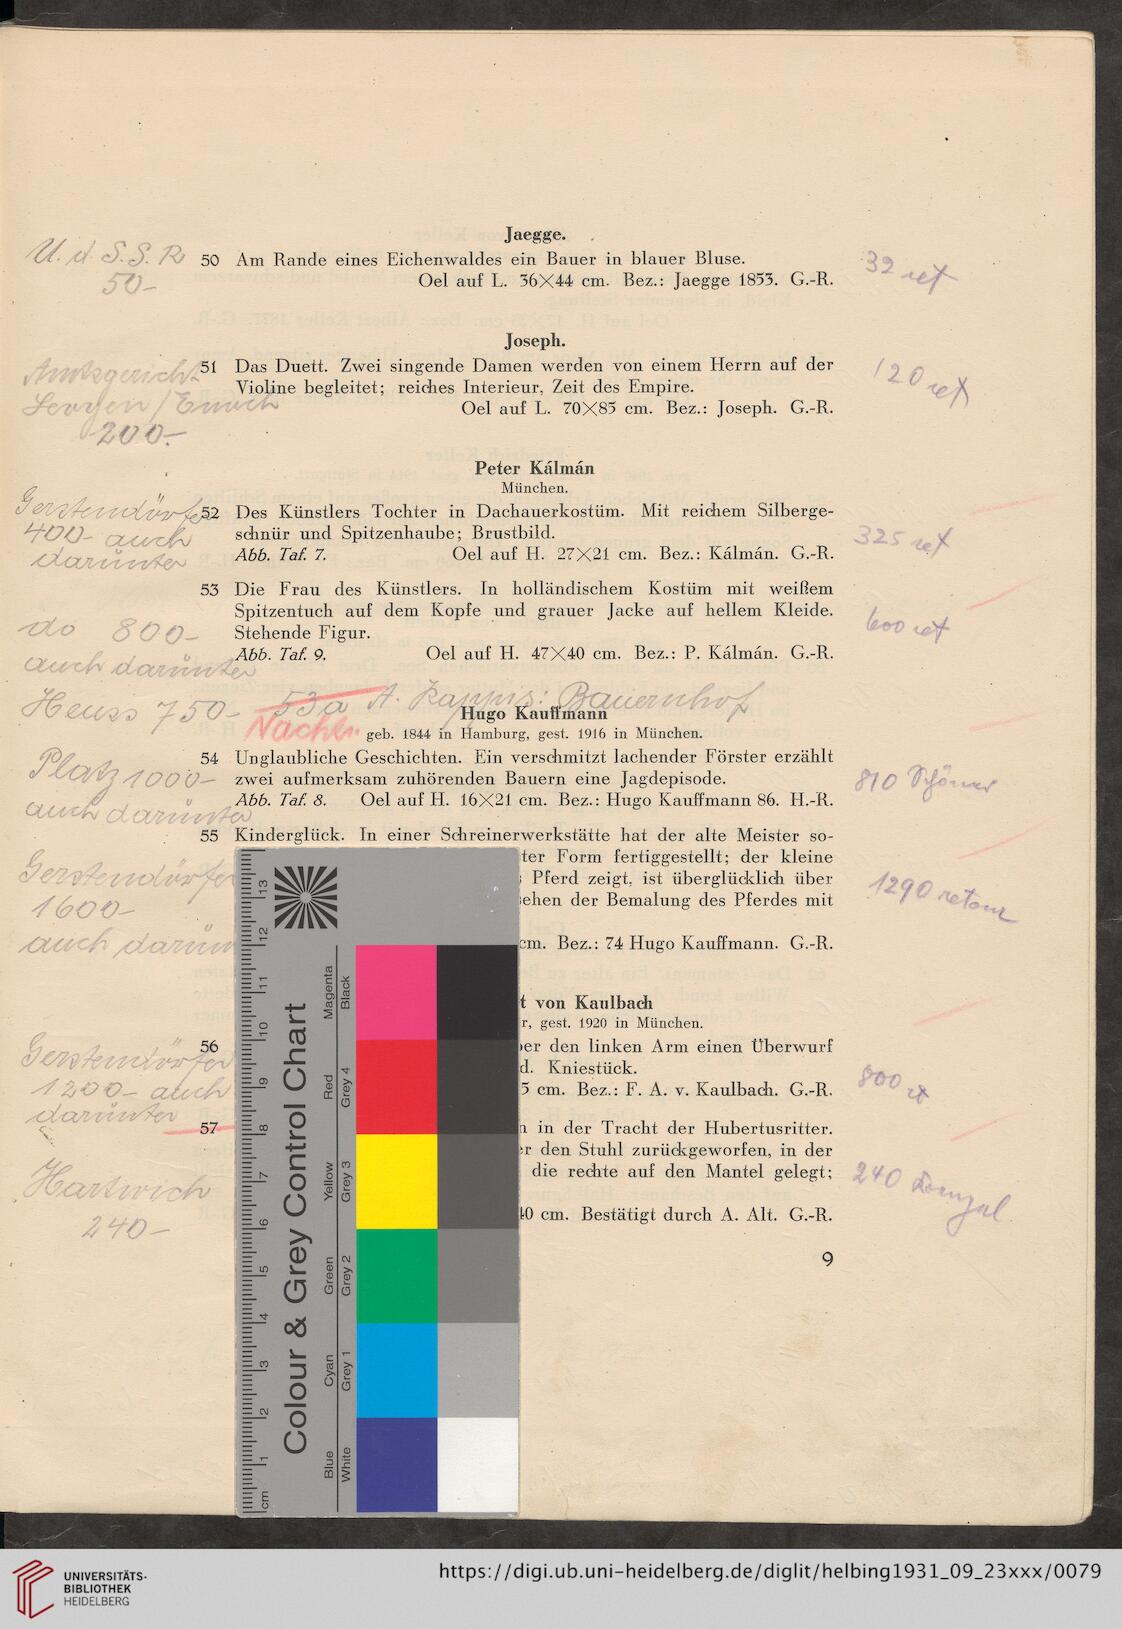 Jaegge.
U. d. S. S. R
50-
50 Am Rande eines Eichenwaldes ein Bauer in blauer Bluse.
Oel auf L. 36×44 cm. Bez.: Jaegge 1853. G.-R.
32 ret
Joseph.
Amtsgericht
200.-
51 Das Duett. Zwei singende Damen werden von einem Herrn auf der
Violine begleitet; reiches Interieur, Zeit des Empire.
Oel auf L. 70×85 cm. Bez.: Joseph. G.-R.
120 ret
Peter Kálmán
München.
Gerstendörfer
400- auch
darunter
52 Des Künstlers Tochter in Dachauerkostüm. Mit reichem Silberge-
schnür und Spitzenhaube; Brustbild.
Abb. Taf. 7. Oel auf H. 27×21 cm. Bez.: Kálmán. G.-R.
325 ret
do 800-
auch darunter
53 Die Frau des Künstlers. In holländischem Kostüm mit weißem
Spitzentuch auf dem Kopfe und grauer Jacke auf hellem Kleide.
Stehende Figur.
Abb. Taf. 9. Oel auf H. 47×40 cm. Bez.: P. Kálmán. G.-R.
600 ret
Heuss 750- 53a A. Kappis: Bauernhof
Nachtr.
Hugo Kauffmann
geb. 1844 in Hamburg, gest. 1916 in München.
Platz 1000-
auch darunter
54 Unglaubliche Geschichten. Ein verschmitzt lachender Förster erzählt
zwei aufmerksam zuhörenden Bauern eine Jagdepisode.
Abb. Taf. 8. Oel auf H. 16×21 cm. Bez.: Hugo Kauffmann 86. H.-R.
810
Gerstendörfer
1600-
auch darun
55 Kinderglück. In einer Schreinerwerkstätte hat der alte Meister so-
ter Form fertiggestellt; der kleine
Pferd zeigt, ist überglücklich über
ehen der Bemalung des Pferdes mit
cm. Bez.: 74 Hugo Kauffmann. G.-R.
1290 retour
t von Kaulbach
r, gest. 1920 in München.
Gerstendörfer
1200- auch
darunter
56 er den linken Arm einen Überwurf
d. Kniestück.
5 cm. Bez.: F. A. v. Kaulbach. G.-R.
800 rt
Hartwich
240-
57 n in der Tracht der Hubertusritter.
r den Stuhl zurückgeworfen, in der
die rechte auf den Mantel gelegt;
40 cm. Bestätigt durch A. Alt. G.-R.
240
9
Colour & Grey Control Chart
Magenta
Red
Yellow
Green
Cyan
Blue
Black
Grey 4
Grey 3
Grey 2
Grey 1
White
13
12
11
10
9
8
7
6
5
4
3
2
1
cm
UNIVERSITÄTS-
BIBLIOTHEK
HEIDELBERG
https://digi.ub.uni-heidelberg.de/diglit/helbing1931_09_23xxx/0079